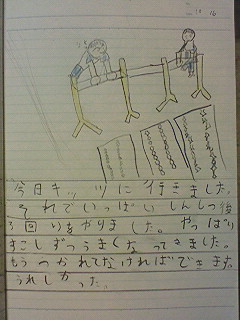 二/16
今日キッツに行きました。
それでいっぱいしんしつ後
3回りをやりました。やっぱり
すこしずつうまくなってきました。
もうつかれてなければできます。
うれしかった。